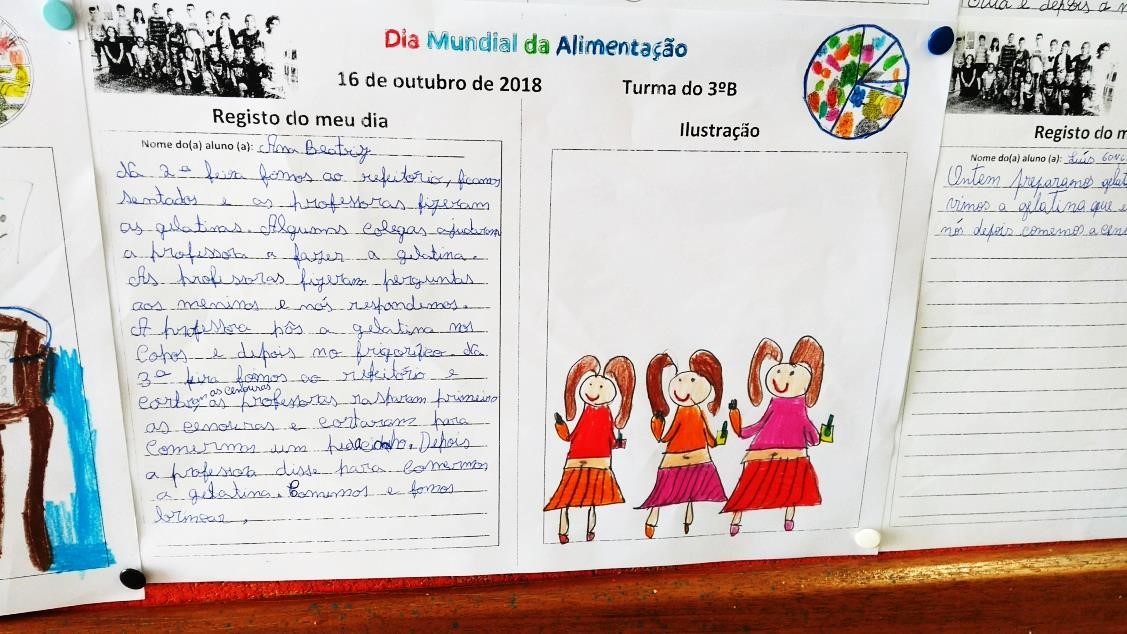 Dia Mundial da Alimentação
16 de outubro de 2018
Turma do 3ºB
Registo do meu dia
Nome do(a) aluno (a): Ana Beatriz
Na 2ª feira fomos ao refeitorio, ficamos
sentados e as professoras fizeram
as gelatinas. Algumas colegas ajudaram
a professora a fazer a gelatina.
As professoras fizeram perguntas
aos meninos e nós respondemos.
A professora pôs a gelatina nos
copos e depois no frigorífico. Na
3ª feira fomos ao refeitório e
as cenouras
as professoras rasparam primeiro
as cenouras e cortaram para
comermos um pedacinho. Depois
a professora disse para comermos
a gelatina. Comemos e fomos
brincar.
Ilustração
e depois a
Registo do m
Nome do(a) aluno (a): Luís
Ontem preparamos gelat
vimos a gelatina que e
nós depois comemos a cen